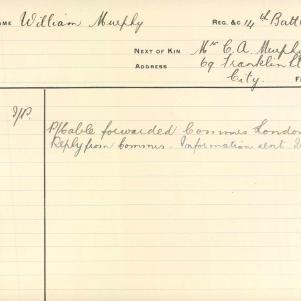 NAME William Murphy REG. &C 14th Batt
NEXT OF KIN Mrs C. A. Murphy
ADDRESS 69 Franklin St
City.
P/Cable forwarded Commrs London
Reply from Commrs. Information sent